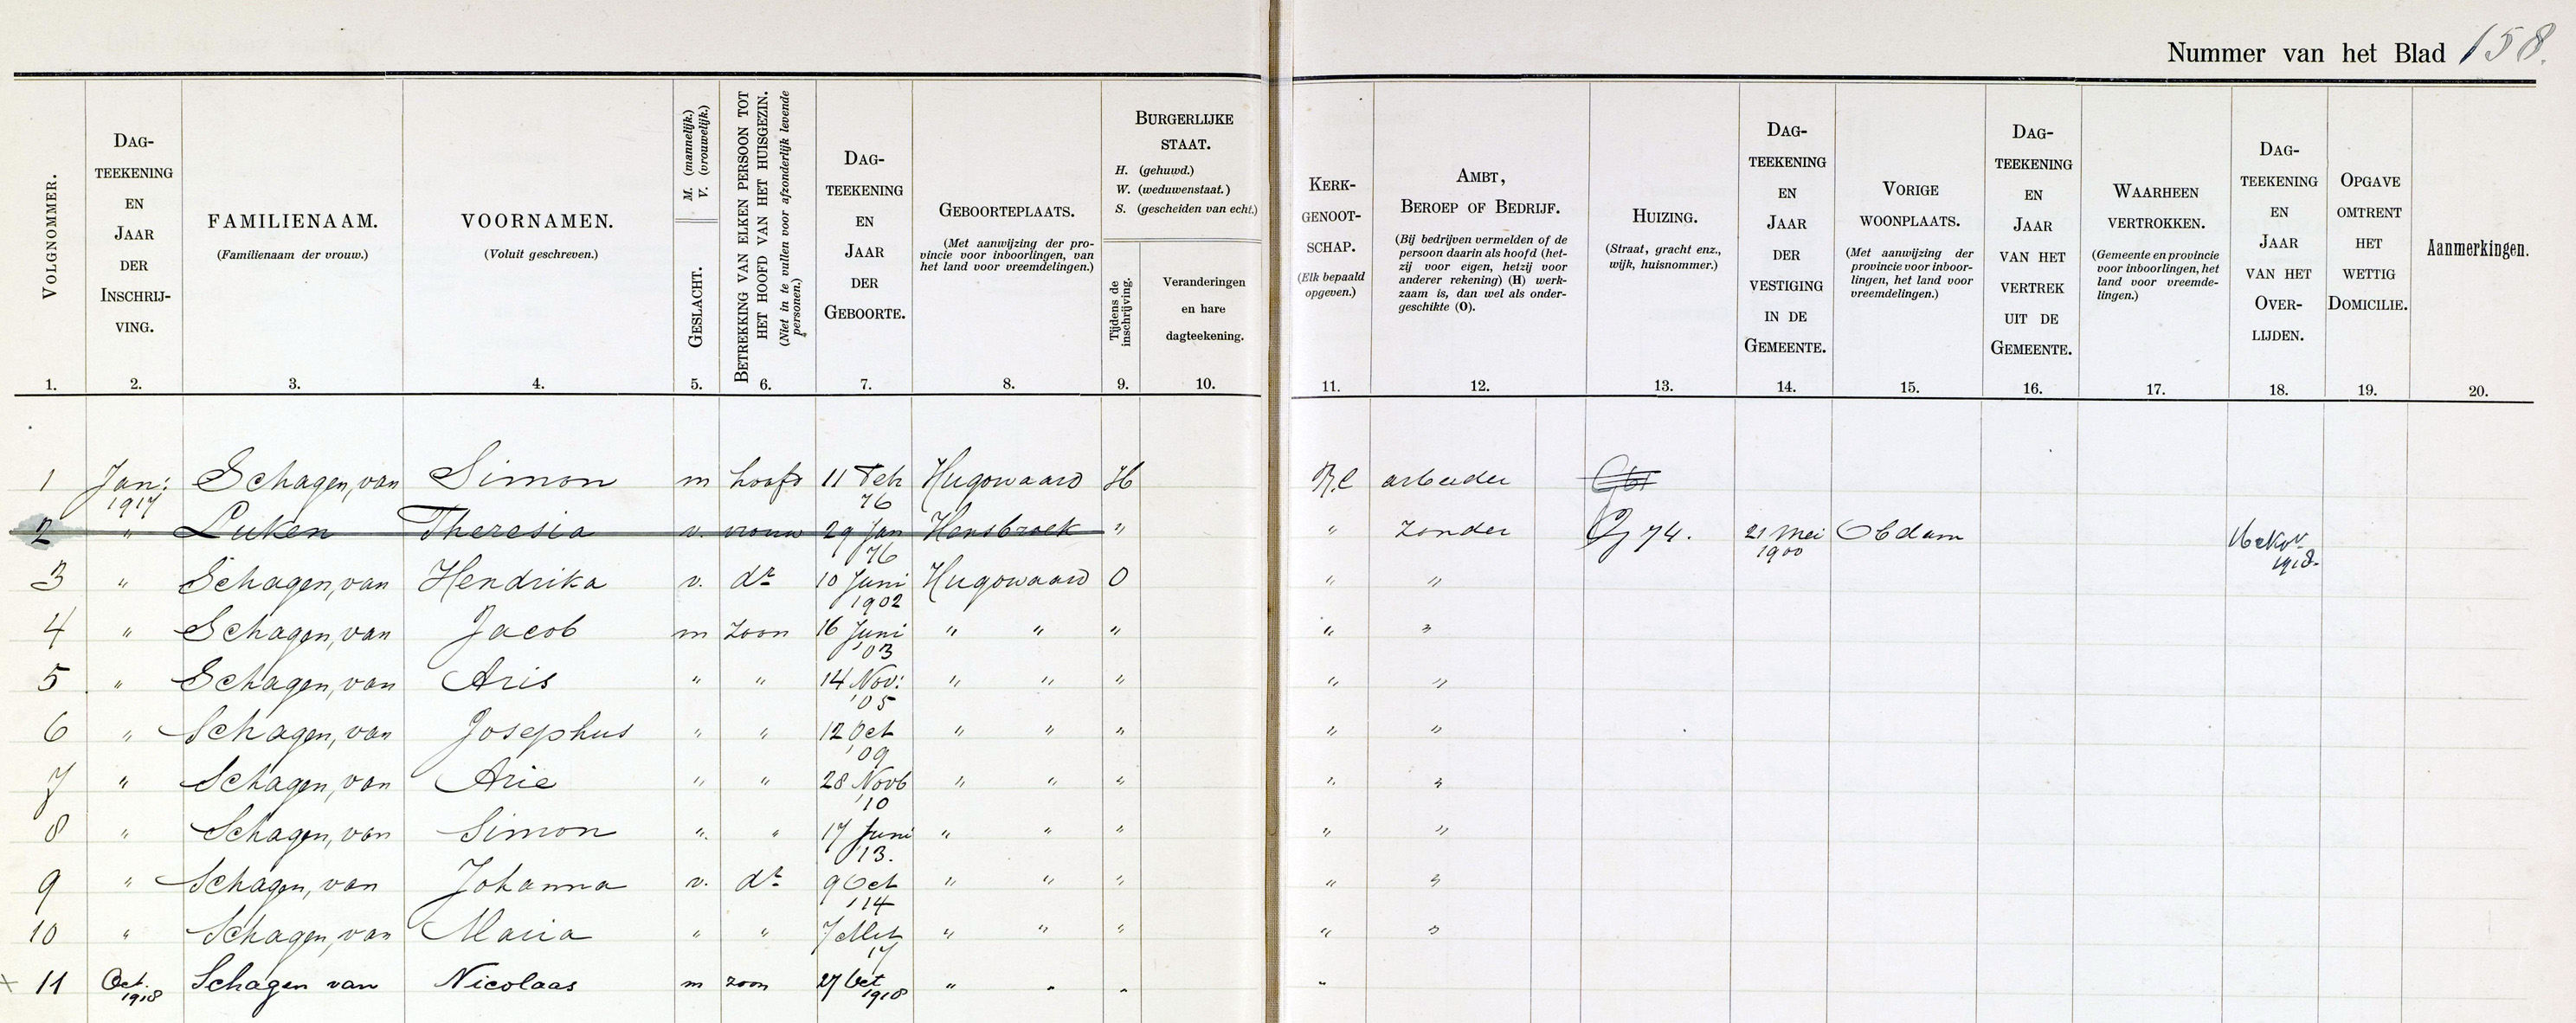 Nummer van het Blad 158.
VOLGNUMMER.
DAG-
TEEKENING
EN
JAAR
DER
INSCHRIJ-
VING.
FAMILIENAAM.
(Familienaam der vrouw.)
VOORNAMEN.
(Voluit geschreven.)
M. (mannelijk.)
V. (vrouwelijk.)
GESLACHT.
BETREKKING VAN ELKEN PERSOON TOT
HET HOOFD VAN HET HUISGEZIN.
(Niet in te vullen voor afzonderlijk levende
personen.)
DAG-
TEEKENING
EN
JAAR
DER
GEBOORTE.
GEBOORTEPLAATS.
(Met aanwijzing der pro-
vincie voor inboorlingen, van
het land voor vreemdelingen.)
BURGERLIJKE
STAAT.
H. (gehuwd.)
W. (weduwenstaat.)
S. (gescheiden van echt.)
Tijdens de
inschrijving.
Veranderingen
en hare
dagteekening.
KERK-
GENOOT-
SCHAP.
(Elk bepaald
opgeven.)
AMBT,
BEROEP OF BEDRIJF.
(Bij bedrijven vermelden of de
persoon daarin als hoofd (het-
zij voor eigen, hetzij voor
anderer rekening) (H) werk-
zaam is, dan wel als onder-
geschikte (O).
HUIZING.
(Straat, gracht enz.,
wijk, huisnommer.)
DAG-
TEEKENING
EN
JAAR
DER
VESTIGING
IN DE
GEMEENTE.
VORIGE
WOONPLAATS.
(Met aanwijzing der
provincie voor inboor-
lingen, het land voor
vreemdelingen.)
DAG-
TEEKENING
EN
JAAR
VAN HET
VERTREK
UIT DE
GEMEENTE.
WAARHEEN
VERTROKKEN.
(Gemeente en provincie
voor inboorlingen, het
land voor vreemde-
lingen.)
DAG-
TEEKENING
EN
JAAR
VAN HET
OVER-
LIJDEN.
OPGAVE
OMTRENT
HET
WETTIG
DOMICILIE.
Aanmerkingen.
1. 2. 3. 4. 5. 6. 7. 8. 9. 10. 11. 12. 13. 14. 15. 16. 17. 18. 19. 20.
1 Jan: 1917 Schagen, van Simon m hoofd 11 Feb 76 Hugowaard H R.C arbeider
2 " Luken Theresia v. vrouw 29 Jan 76 Hensbroek " " zonder 74. 21 Mei 1900 Obdam 16 Nov 1918.
3 " Schagen, van Hendrika v. dr 10 Juni 1902 Hugowaard O " "
4 " Schagen, van Jacob m zoon 16 Juni '03 " " " " "
5 " Schagen, van Aris " " 14 Nov: '05 " " " " "
6 " Schagen, van Josephus " " 12 Oct '09 " " " " "
7 " Schagen, van Arie " " 28 Novb '10 " " " " "
8 " Schagen, van Simon " " 17 Juni '13. " " " " "
9 " Schagen, van Johanna v. dr 9 Oct '14 " " " " "
10 " Schagen, van Maria " " 7 17 " " " " "
11 Oct. 1918 Schagen van Nicolaas m zoon 27 Oct 1918 " " " "